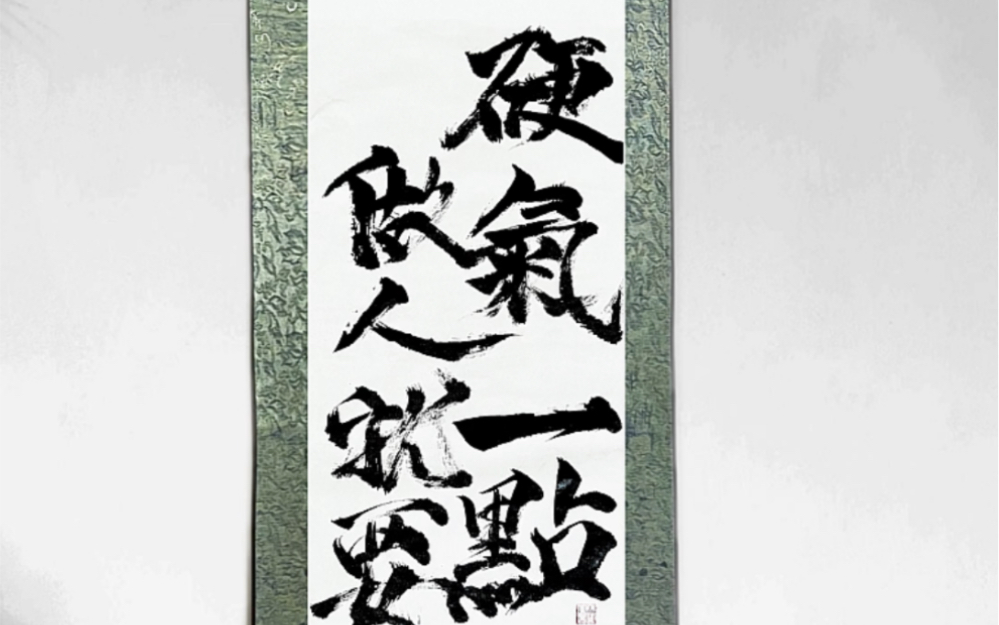 做人就要
硬氣一點